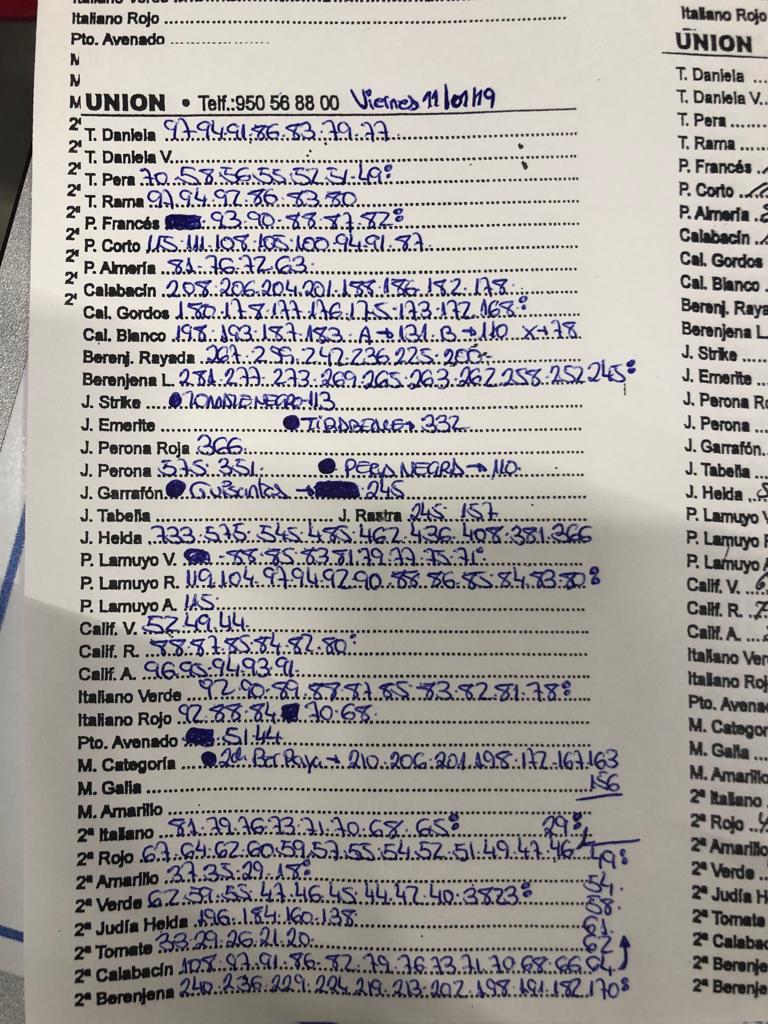 Italiano Rojo
Pto. Avenado
M
M
M UNION • Telf.:950 56 88 00 Viernes 11/01/19
T. Daniela 97.94.91.86.83.79.77
T. Daniela V.
T. Pera 70.58.56.55.52.51.49:
T. Rama 97.94.92.86.83.80
P. Francés 93.90.88.87.82:
P. Corto 115.111.108.105.100.94.91.87
P. Almería 81.76.72.63
Calabacín 208.206.204.201.188.186.182.178
Cal. Gordos 180.178.177.176.175.173.172.168:
Cal. Blanco 198.193.187.183. A→131. B→110 X→78
Berenj. Rayada 267. 242.236.225.200
Berenjena L. 281.277.273.269.265.263.262.258.252.245:
J. Strike 113
J. Emerite TIRABEQUE→ 332
J. Perona Roja 366
J. Perona 575. 351. PERA NEGRA→110
J. Garrafón Guisantes → 245
J. Tabella J. Rastra 245. 157
J. Helda 733.575.545.485.462.436.408.381.366
P. Lamuyo V. 88.85.83.81.79.77.75.71:
P. Lamuyo R. 119.104.97.94.92.90.88.86.85.84.83.80:
P. Lamuyo A. 115
Calif. V. 52.49.44
Calif. R. 88.87.85.84.82.80:
Calif. A. 96.95.94.93.91
Italiano Verde 92.90.89.88.87.85.83.82.81.78:
Italiano Rojo 92.88.84 70.68
Pto. Avenado 51.44
M. Categoría 2ª Ber Raya→ 210.206.201.198.172.167.163
M. Galia 156
M. Amarillo
2ª Italiano 81.79.76.73.71.70.68.65: 29:
2ª Rojo 67.64.62.60.59.57.55.54.52.51.49.47.46
2ª Amarillo 37.35.29.18: 49:
2ª Verde 62.59.55.47.46.45.44.42.40.38 23: 54.
2ª Judía Helda 196.184.160.138 58.
2ª Tomate 33.29.26.21.20 61
2ª Calabacín 108.97.91.86.82.79.76.73.71.70.68.66.64 62
2ª Berenjena 240.236.229.224.219.213.202.198.191.182.170:
Italiano Rojo
UNION
T. Daniela
T. Daniela V.
T. Pera
T. Rama
P. Francés
P. Corto
P. Almería
Calabacín
Cal. Gordos
Cal. Blanco
Berenj. Raya
Berenjena L.
J. Strike
J. Emerite
J. Perona Ro
J. Perona
J. Garrafón
J. Tabella
J. Helda
P. Lamuyo V
P. Lamuyo
P. Lamuyo
Calif. V.
Calif. R.
Calif. A.
Italiano Ver
Italiano Roj
Pto. Avena
M. Categor
M. Galia
M. Amarill
2ª Italiano
2ª Rojo
2ª Amarillo
2ª Verde
2ª Judía H
2ª Tomate
2ª Calabac
2ª Berenje
2ª Berenje